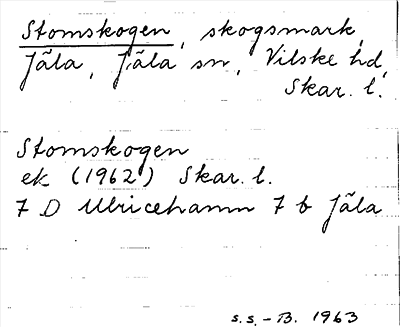 Stomskogen, skogsmark,
Jäla, Jäla sn, Vilske hd,
Skar. l.
Stomskogen
ek (1962) Skar. l.
7 D Ulricehamn 7 b Jäla
s.s.-B. 1963